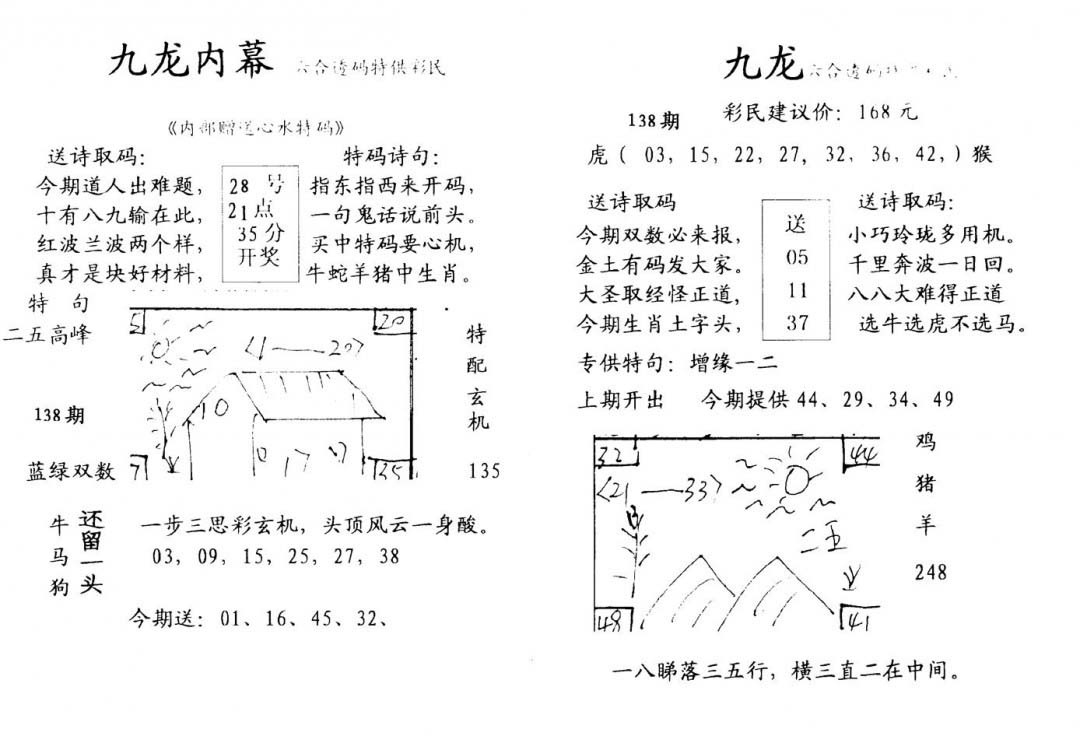 九龙内幕 六合透码特供彩民
《内部赠送心水特码》
送诗取码:
今期道人出难题,
十有八九输在此,
红波兰波两个样,
真才是块好材料,
28 号
21点
35分
开奖
特码诗句:
指东指西来开码,
一句鬼话说前头。
买中特码要心机,
牛蛇羊猪中生肖。
特 句
二五高峰
138期
蓝绿双数
5
20
<1——20>
10
0 17
7
35
特
配
玄
机
135
牛
马
狗
还
留
一
头
一步三思彩玄机, 头顶风云一身酸。
03, 09, 15, 25, 27, 38
今期送: 01、16、45、32、
九龙 六合透码
138期 彩民建议价: 168 元
虎 ( 03, 15, 22, 27, 32, 36, 42,) 猴
送诗取码
今期双数必来报,
金土有码发大家。
大圣取经怪正道,
今期生肖土字头,
送
05
11
37
送诗取码:
小巧玲珑多用机。
千里奔波一日回。
八八大难得正道
选牛选虎不选马。
专供特句: 增缘一二
上期开出 今期提供 44、29、34、49
32
44
<21——33>
二五
48
41
鸡
猪
羊
248
一八睇落三五行, 横三直二在中间。